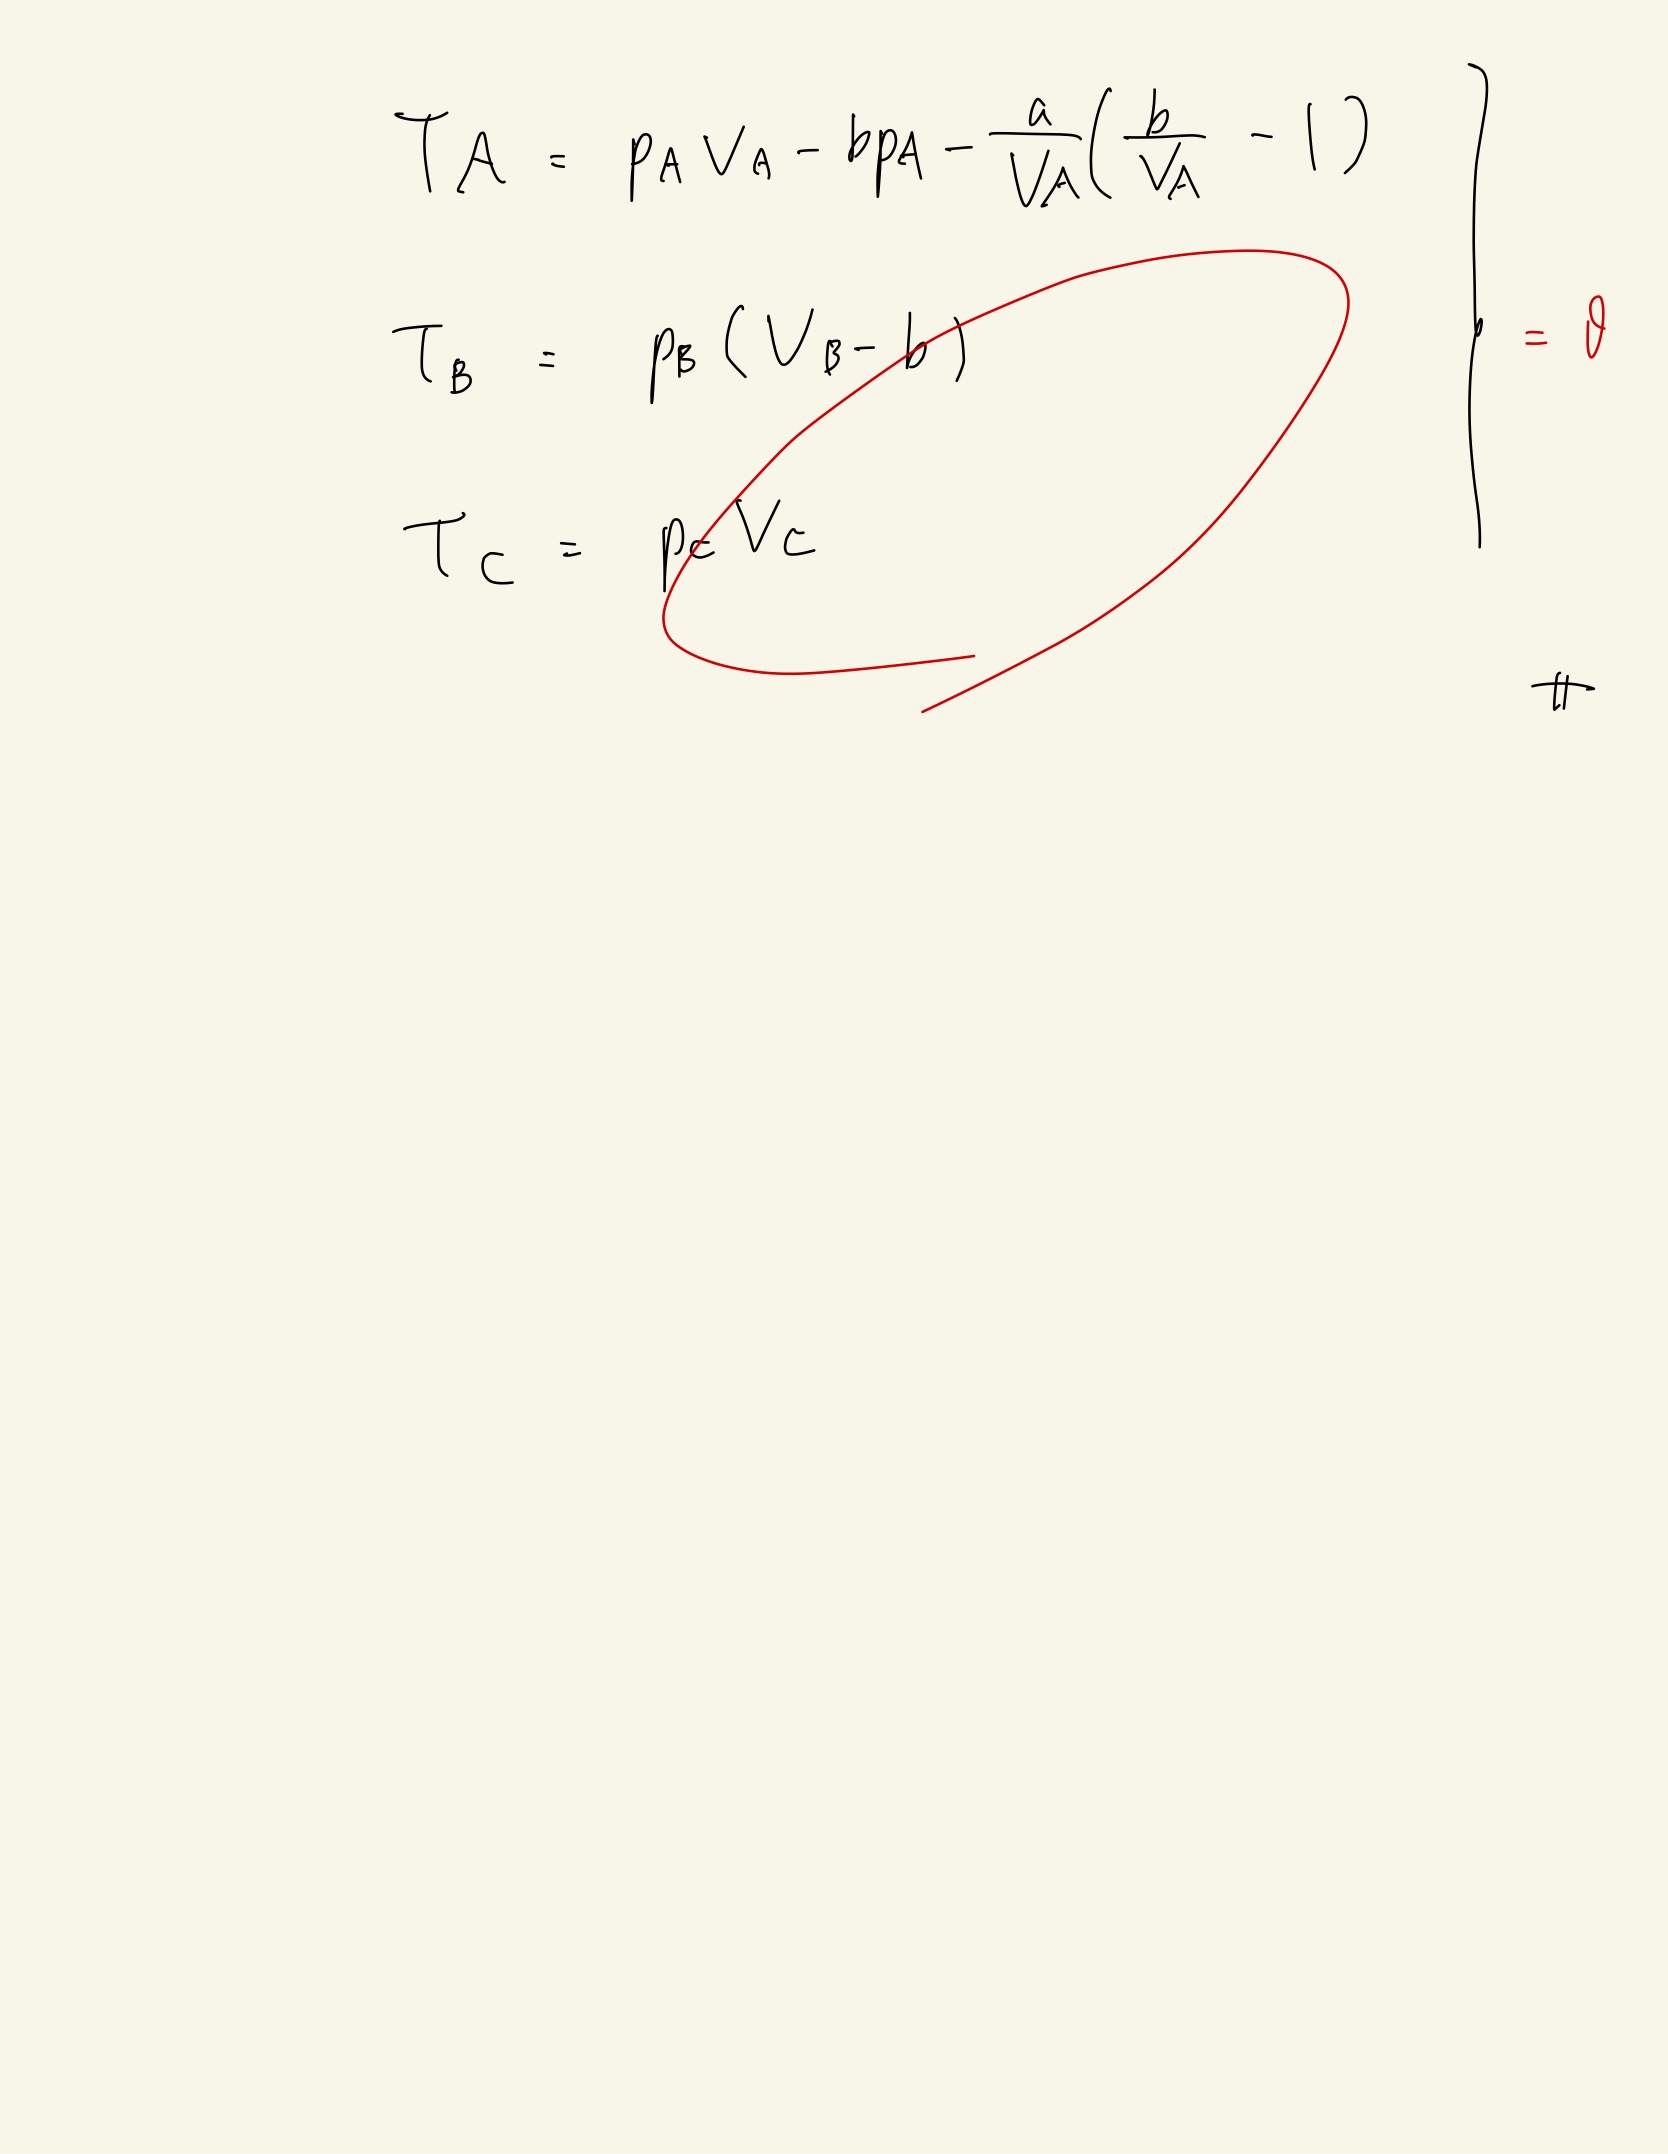 T_A = p_A V_A - b p_A - \frac{a}{V_A} ( \frac{b}{V_A} - 1 )
T_B = p_B ( V_B - b ) } = θ
T_C = p_C V_C